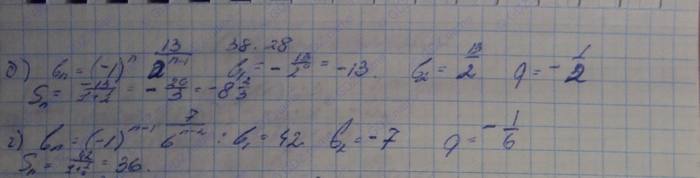 38.28
б) bₙ = (-1)ⁿ 13/2ⁿ⁻¹ b₁ = -13/2⁰ = -13. b₂ = 13/2 q = -1/2
Sₙ = -13/(1+1/2) = -26/3 = -8 2/3
г) bₙ = (-1)ⁿ⁻¹ 7/6ⁿ⁻² : b₁ = 42 b₂ = -7 q = -1/6
Sₙ = 42/(1+1/6) = 36.